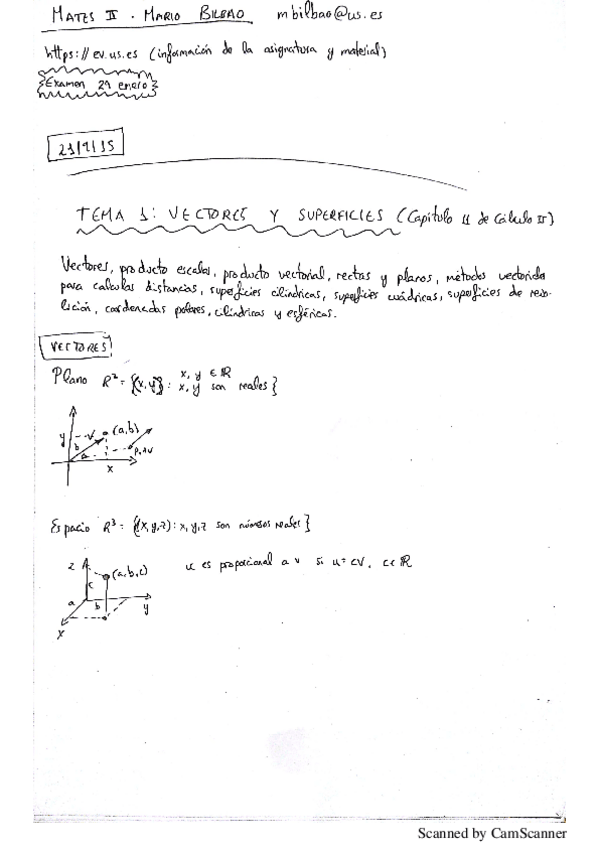 MATES II . MARIO BILBAO mbilbao@us.es
https://ev.us.es (información de la asignatura y material)
Examen 29 enero
TEMA 1: VECTORES Y SUPERFICIES (Capítulo 11 de Cálculo II)
Vectores, producto escalar, producto vectorial, rectas y planos, métodos vectoriales
para calcular distancias, superficies cilíndricas, superficies cuádricas, superficies de revo-
lución, coordenadas polares, cilíndricas y esféricas.
VECTORES
Plano R² = {(x,y) : x, y son reales}
x, y ∈ ℝ
y v (a,b)
b
a
x
Espacio R³ = {(x,y,z) : x,y,z son números reales}
z (a,b,c) u es proporcional a v si u = cv, c∈ℝ
c
a b y
x
Scanned by CamScanner